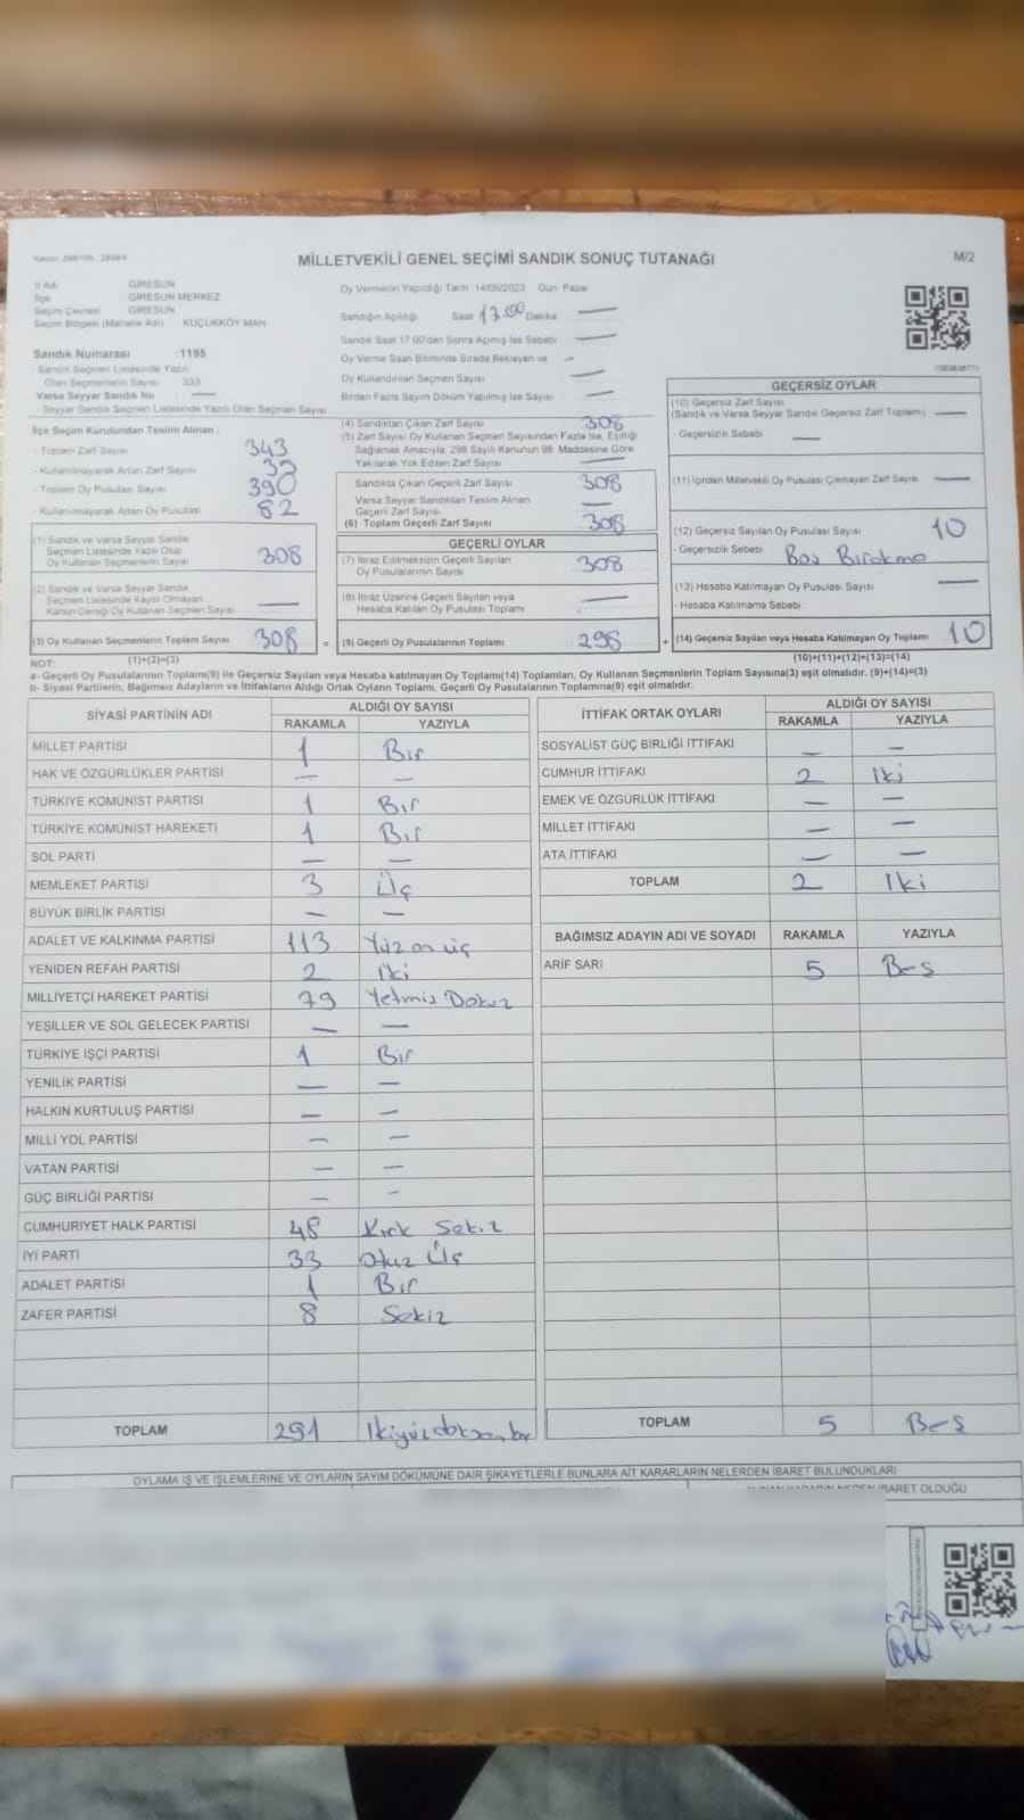 MİLLETVEKİLİ GENEL SEÇİMİ SANDIK SONUÇ TUTANAĞI
M/2
İl Adı GİRESUN
İlçe GİRESUN MERKEZ
Seçim Çevresi GİRESUN
Seçim Bölgesi (Mahalle Adı) KÜÇÜKKÖY MAH.
Sandık Numarası :1195
Sandık Seçmen Listesinde Yazılı
Olan Seçmenlerin Sayısı 333
Varsa Seyyar Sandık No
Seyyar Sandık Seçmen Listesinde Yazılı Olan Seçmen Sayısı
İlçe Seçim Kurulundan Teslim Alınan :
- Toplam Zarf Sayısı 343
- Kullanılmayarak Artan Zarf Sayısı
- Toplam Oy Pusulası Sayısı 390
- Kullanılmayarak Artan Oy Pusulası 82
(1) Sandık ve varsa Seyyar Sandık
Seçmen Listesinde Yazılı Olup
Oy Kullanan Seçmenlerin Sayısı 308
(2) Sandık ve varsa Seyyar Sandık
Seçmen Listesinde Kayıtlı Olmayan
Kanun Gereği Oy Kullanan Seçmen Sayısı —
(3) Oy Kullanan Seçmenlerin Toplam Sayısı 308
Oy Vermenin Yapıldığı Tarih :14/05/2023 Gün: Pazar
Sandığın Açıldığı Saat 17:00 Dakika —
Sandık Saat 17.00'den Sonra Açılmış İse Sebebi —
Oy Verme Saati Bitiminde Sırada Bekleyen ve
Oy Kullandırılan Seçmen Sayısı —
Birden Fazla Sayım Döküm Yapılmış İse Sayısı —
(4) Sandıktan Çıkan Zarf Sayısı 308
(5) Zarf Sayısı Oy Kullanan Seçmen Sayısından Fazla İse, Eşitliği
Sağlamak Amacıyla; 298 Sayılı Kanunun 98. Maddesine Göre
Yakılarak Yok Edilen Zarf Sayısı —
Sandıkta Çıkan Geçerli Zarf Sayısı 308
Varsa Seyyar Sandıktan Teslim Alınan
Geçerli Zarf Sayısı —
(6) Toplam Geçerli Zarf Sayısı 308
GEÇERLİ OYLAR
(7) İtiraz Edilmeksizin Geçerli Sayılan
Oy Pusulalarının Sayısı 308
(8) İtiraz Üzerine Geçerli Sayılan veya
Hesaba Katılan Oy Pusulası Toplamı —
= (9) Geçerli Oy Pusulalarının Toplamı 298
GEÇERSİZ OYLAR
(10) Geçersiz Zarf Sayısı
(Sandık ve Varsa Seyyar Sandık Geçersiz Zarf Toplamı) —
- Geçersizlik Sebebi —
(11) İçinden Milletvekili Oy Pusulası Çıkmayan Zarf Sayısı —
(12) Geçersiz Sayılan Oy Pusulası Sayısı 10
- Geçersizlik Sebebi Boş Bırakma
(13) Hesaba Katılmayan Oy Pusulası Sayısı —
- Hesaba Katılmama Sebebi
+ (14) Geçersiz Sayılan veya Hesaba Katılmayan Oy Toplamı 10
NOT: (1)+(2)=(3) (10)+(11)+(12)+(13)=(14)
a- Geçerli Oy Pusulalarının Toplamı(9) ile Geçersiz Sayılan veya Hesaba katılmayan Oy Toplamı(14) Toplamları, Oy Kullanan Seçmenlerin Toplam Sayısına(3) eşit olmalıdır. (9)+(14)=(3)
b- Siyasi Partilerin, Bağımsız Adayların ve İttifakların Aldığı Ortak Oyların Toplamı, Geçerli Oy Pusulalarının Toplamına(9) eşit olmalıdır.
SİYASİ PARTİNİN ADI ALDIĞI OY SAYISI
RAKAMLA YAZIYLA
MİLLET PARTİSİ 1 Bir
HAK VE ÖZGÜRLÜKLER PARTİSİ — —
TÜRKİYE KOMÜNİST PARTİSİ 1 Bir
TÜRKİYE KOMÜNİST HAREKETİ 1 Bir
SOL PARTİ — —
MEMLEKET PARTİSİ 3 Üç
BÜYÜK BİRLİK PARTİSİ — —
ADALET VE KALKINMA PARTİSİ 113 Yüz on üç
YENİDEN REFAH PARTİSİ 2 İki
MİLLİYETÇİ HAREKET PARTİSİ 79 Yetmiş Dokuz
YEŞİLLER VE SOL GELECEK PARTİSİ — —
TÜRKİYE İŞÇİ PARTİSİ 1 Bir
YENİLİK PARTİSİ — —
HALKIN KURTULUŞ PARTİSİ — —
MİLLİ YOL PARTİSİ — —
VATAN PARTİSİ — —
GÜÇ BİRLİĞİ PARTİSİ — —
CUMHURİYET HALK PARTİSİ 48 Kırk Sekiz
İYİ PARTİ 33 Otuz Üç
ADALET PARTİSİ 1 Bir
ZAFER PARTİSİ 8 Sekiz
TOPLAM 291 İkiyüzdoksanbir
İTTİFAK ORTAK OYLARI ALDIĞI OY SAYISI
RAKAMLA YAZIYLA
SOSYALİST GÜÇ BİRLİĞİ İTTİFAKI — —
CUMHUR İTTİFAKI 2 İki
EMEK VE ÖZGÜRLÜK İTTİFAKI — —
MİLLET İTTİFAKI — —
ATA İTTİFAKI — —
TOPLAM 2 İki
BAĞIMSIZ ADAYIN ADI VE SOYADI RAKAMLA YAZIYLA
ARİF SARI 5 Beş
TOPLAM 5 Beş
OYLAMA İŞ VE İŞLEMLERİNE VE OYLARIN SAYIM DÖKÜMÜNE DAİR ŞİKAYETLERLE BUNLARA AİT KARARLARIN NELERDEN İBARET BULUNDUKLARI
İBARET OLDUĞU